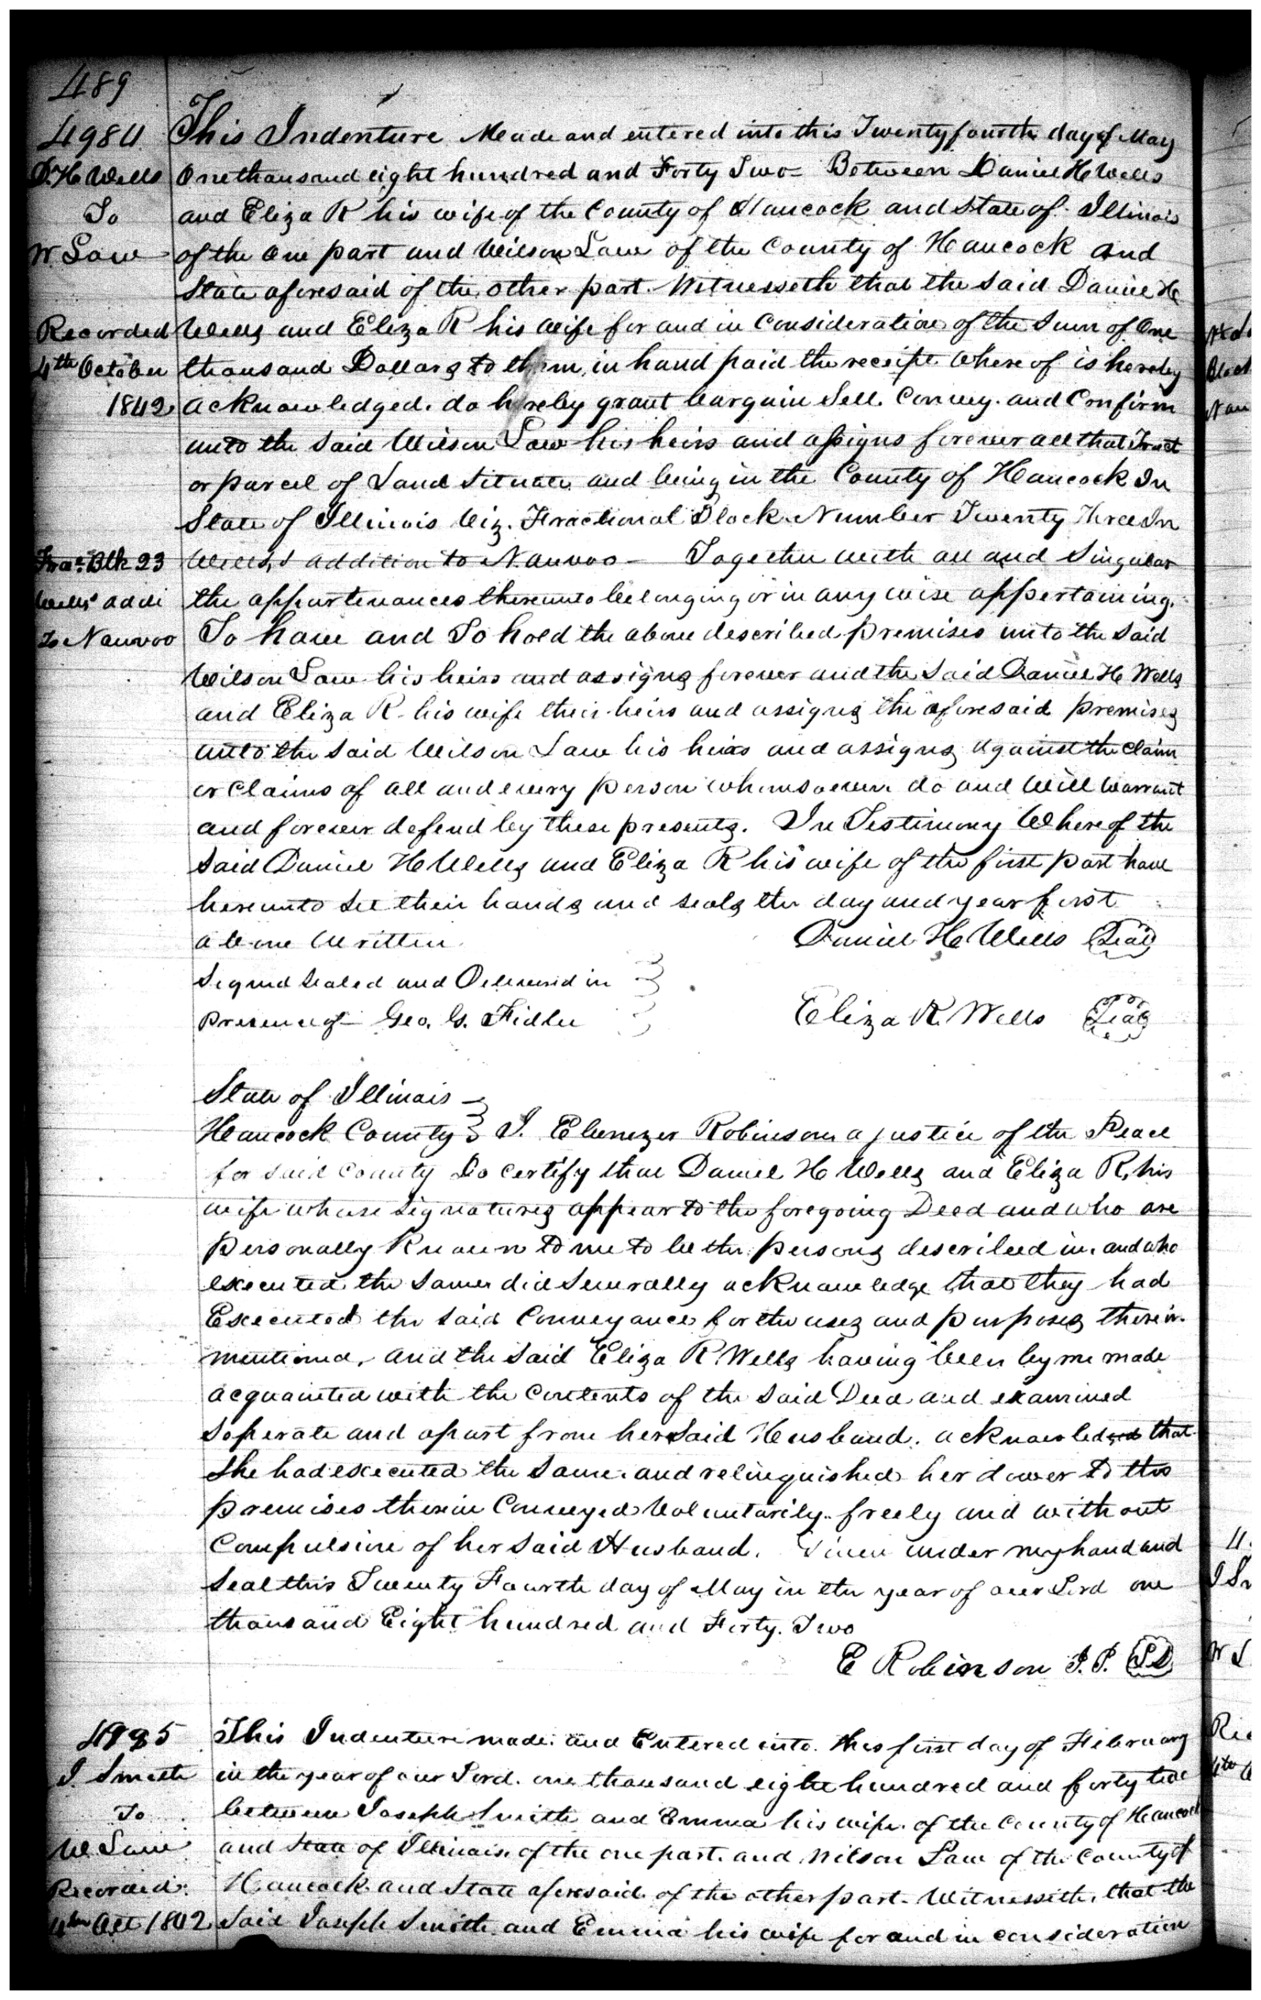 489
4984
D. H. Wells
To
W. Law
Recorded
4th October
1842
Frac. Blk 23
Wells' addi
to Nauvoo
This Indenture Meade and entered into this Twenty fourth day of May
One thousand eight hundred and Forty Two = Between Daniel H Wells
and Eliza R his wife of the County of Hancock and State of Illinois
of the One part and Wilson Law of the County of Hancock and
State aforesaid of the other part. Witnesseth that the said Daniel H
Wells and Eliza R his wife for and in Consideration of the Sum of One
thousand Dollars to them in hand paid the receipt Where of is hereby
acknowledged. do hereby grant bargain Sell. Convey. and Confirm
unto the Said Wilson Law his heirs and assigns forever all that Tract
or parcel of Land Situate and being in the County of Hancock In
State of Illinois Viz. Fractional Block Number Twenty Three In
Wells's addition to Nauvoo — Together with all and Singular
the appurtenances thereunto belonging or in any wise appertaining.
To have and To hold the above described premises unto the Said
Wilson Law his heirs and assigns forever and the Said Daniel H Wells
and Eliza R. his wife their heirs and assigns the aforesaid premises
unto the Said Wilson Law his heirs and assigns against the claim
or Claims of all and every person whomsoever do and Will Warrant
and forever defend by these presents. In Testimony Where of the
Said Daniel H Wells and Eliza R his wife of the first part have
here unto Set their hands and seals the day and year first
above Written.
Daniel H Wells Seal
Signed Sealed and Delivered in
Presence of — Geo. G. Fidler
Eliza R. Wells Seal
State of Illinois —
Hancock County I. Ebenezer Robinson a justice of the Peace
for said County Do certify that Daniel H Wells and Eliza R, his
wife whose Signatures appear to the foregoing Deed and who are
personally Known to me to be the persons described in. and who
executed the Same. did Severally acknowledge that they had
Executed the Said Conveyance for the uses and purposes therein
mentioned. and the Said Eliza R Wells having been by me made
acquainted with the Contents of the Said Deed and examined
Seperate and apart from her Said Husband. acknowledged that
She had executed the Same. and relinquished her dower to the
premises therein Conveyed Voluntarily. freely and with out
Compulsion of her Said Husband. Given under my hand and
Seal this Twenty Fourth day of May in the year of our Lord one
thousand Eight hundred and Forty. Two
E Robinson J. P.
4985
J. Smith
To
W. Law
Recorded.
4th Oct 1842
This Indenture made. and Entered into. this first day of February
in the year of our Lord. one thousand eight hundred and forty two
between Joseph Smith and Emma his wife. of the County of Hancock
and State of Illinois. of the one part. and Wilson Law of the County of
Hancock. and State aforesaid. of the other part. Witnesseth, that the
Said Joseph Smith and Emma his wife for and in consideration